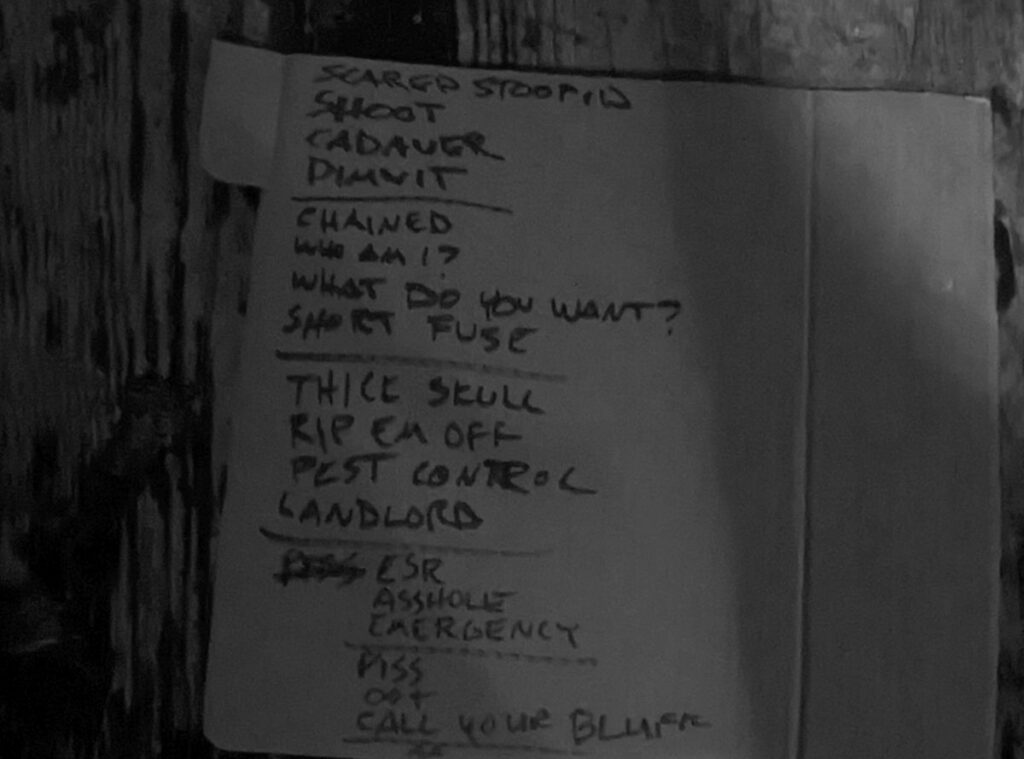 SCARED STOOPID
SHOOT
CADAVER
DIMWIT
CHAINED
WHO AM I?
WHAT DO YOU WANT?
SHORT FUSE
THICK SKULL
RIP EM OFF
PEST CONTROL
LANDLORD
ESR
ASSHOLE
EMERGENCY
PISS
OUT
CALL YOUR BLUFF